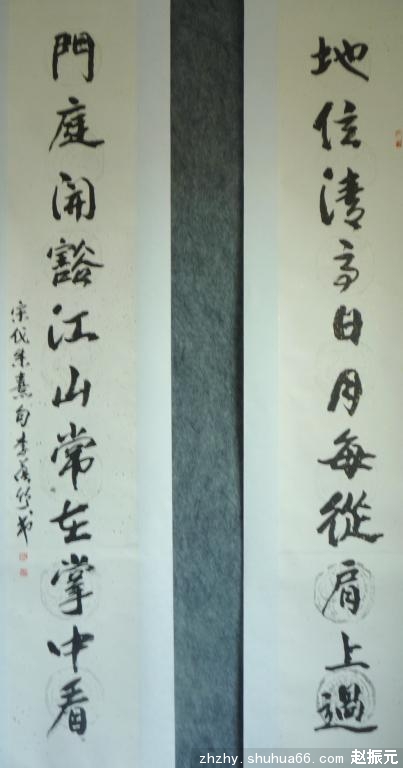 地位清高日月每從肩上過
門庭開豁江山常在掌中看
宋代朱熹句李
zhzhy.shuhua66.com 赵振元